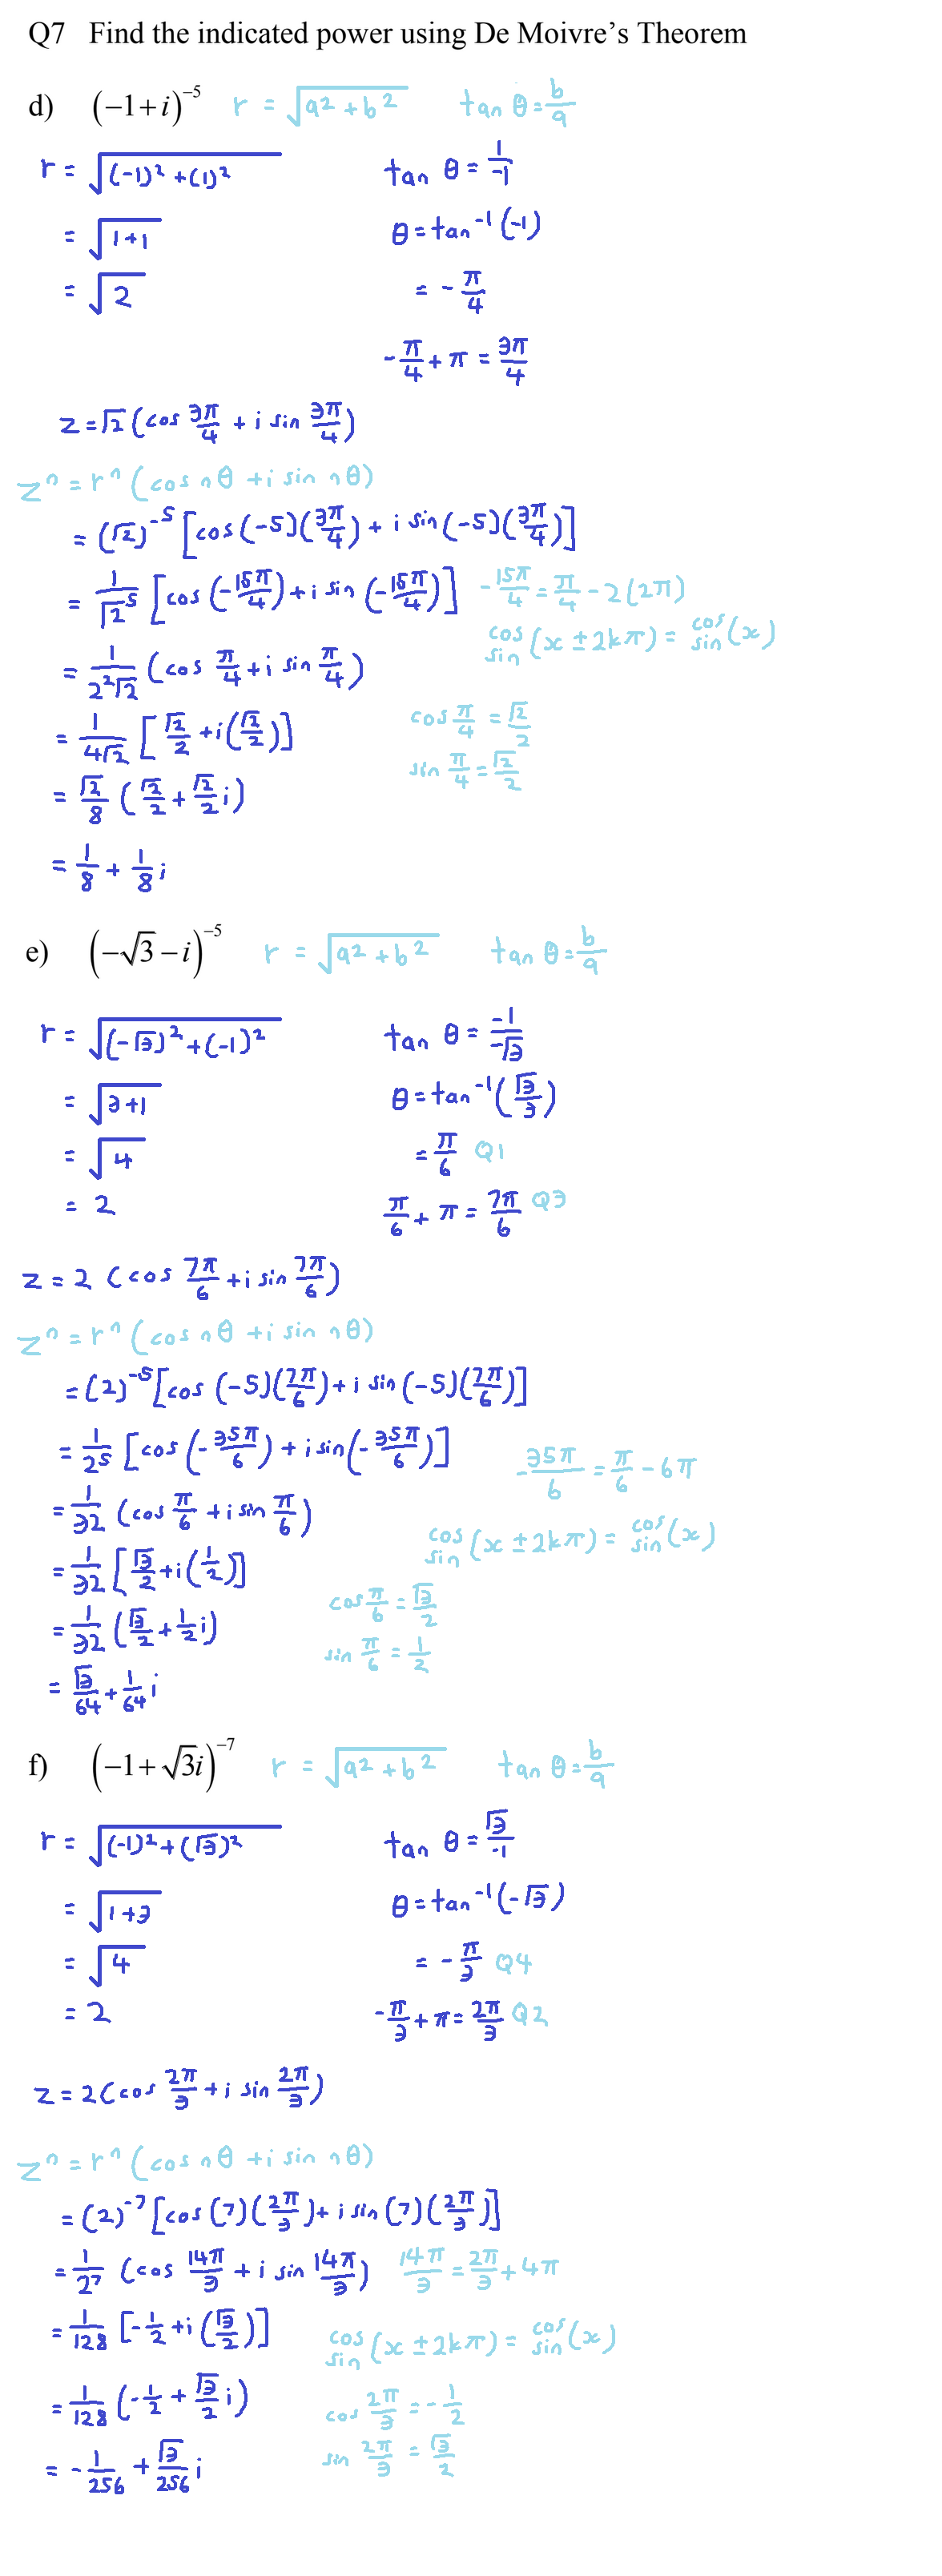 Q7 Find the indicated power using De Moivre's Theorem
d) (−1+i)⁻⁵ r = √(a²+b²) tan θ = b/a
r = √((-1)²+(1)²) tan θ = 1/-1
= √(1+1) θ = tan⁻¹(-1)
= √2 = -π/4
-π/4 + π = 3π/4
z = √2 (cos 3π/4 + i sin 3π/4)
zⁿ = rⁿ (cos nθ + i sin nθ)
= (√2)⁻⁵ [cos (-5)(3π/4) + i sin (-5)(3π/4)]
= 1/√2⁵ [cos (-15π/4) + i sin (-15π/4)] -15π/4 = π/4 - 2(2π)
cos sin (x ± 2kπ) = cos sin (x)
= 1/2²√2 (cos π/4 + i sin π/4)
= 1/4√2 [√2/2 + i(√2/2)] cos π/4 = √2/2
sin π/4 = √2/2
= √2/8 (√2/2 + √2/2 i)
= 1/8 + 1/8 i
e) (−√3 − i)⁻⁵ r = √(a²+b²) tan θ = b/a
r = √((-√3)²+(-1)²) tan θ = -1/-√3
= √(3+1) θ = tan⁻¹(√3/3)
= √4 = π/6 Q1
= 2 π/6 + π = 7π/6 Q3
z = 2 (cos 7π/6 + i sin 7π/6)
zⁿ = rⁿ (cos nθ + i sin nθ)
= (2)⁻⁵ [cos (-5)(7π/6) + i sin (-5)(7π/6)]
= 1/2⁵ [cos (-35π/6) + i sin (-35π/6)] -35π/6 = π/6 - 6π
= 1/32 (cos π/6 + i sin π/6)
cos sin (x ± 2kπ) = cos sin (x)
= 1/32 [√3/2 + i(1/2)]
cos π/6 = √3/2
= 1/32 (√3/2 + 1/2 i) sin π/6 = 1/2
= √3/64 + 1/64 i
f) (−1+√3i)⁻⁷ r = √(a²+b²) tan θ = b/a
r = √((-1)²+(√3)²) tan θ = √3/-1
= √(1+3) θ = tan⁻¹(-√3)
= √4 = -π/3 Q4
= 2 -π/3 + π = 2π/3 Q2
z = 2 (cos 2π/3 + i sin 2π/3)
zⁿ = rⁿ (cos nθ + i sin nθ)
= (2)⁻⁷ [cos (7)(2π/3) + i sin (7)(2π/3)]
= 1/2⁷ (cos 14π/3 + i sin 14π/3) 14π/3 = 2π/3 + 4π
= 1/128 [-1/2 + i(√3/2)] cos sin (x ± 2kπ) = cos sin (x)
= 1/128 (-1/2 + √3/2 i) cos 2π/3 = -1/2
sin 2π/3 = √3/2
= -1/256 + √3/256 i